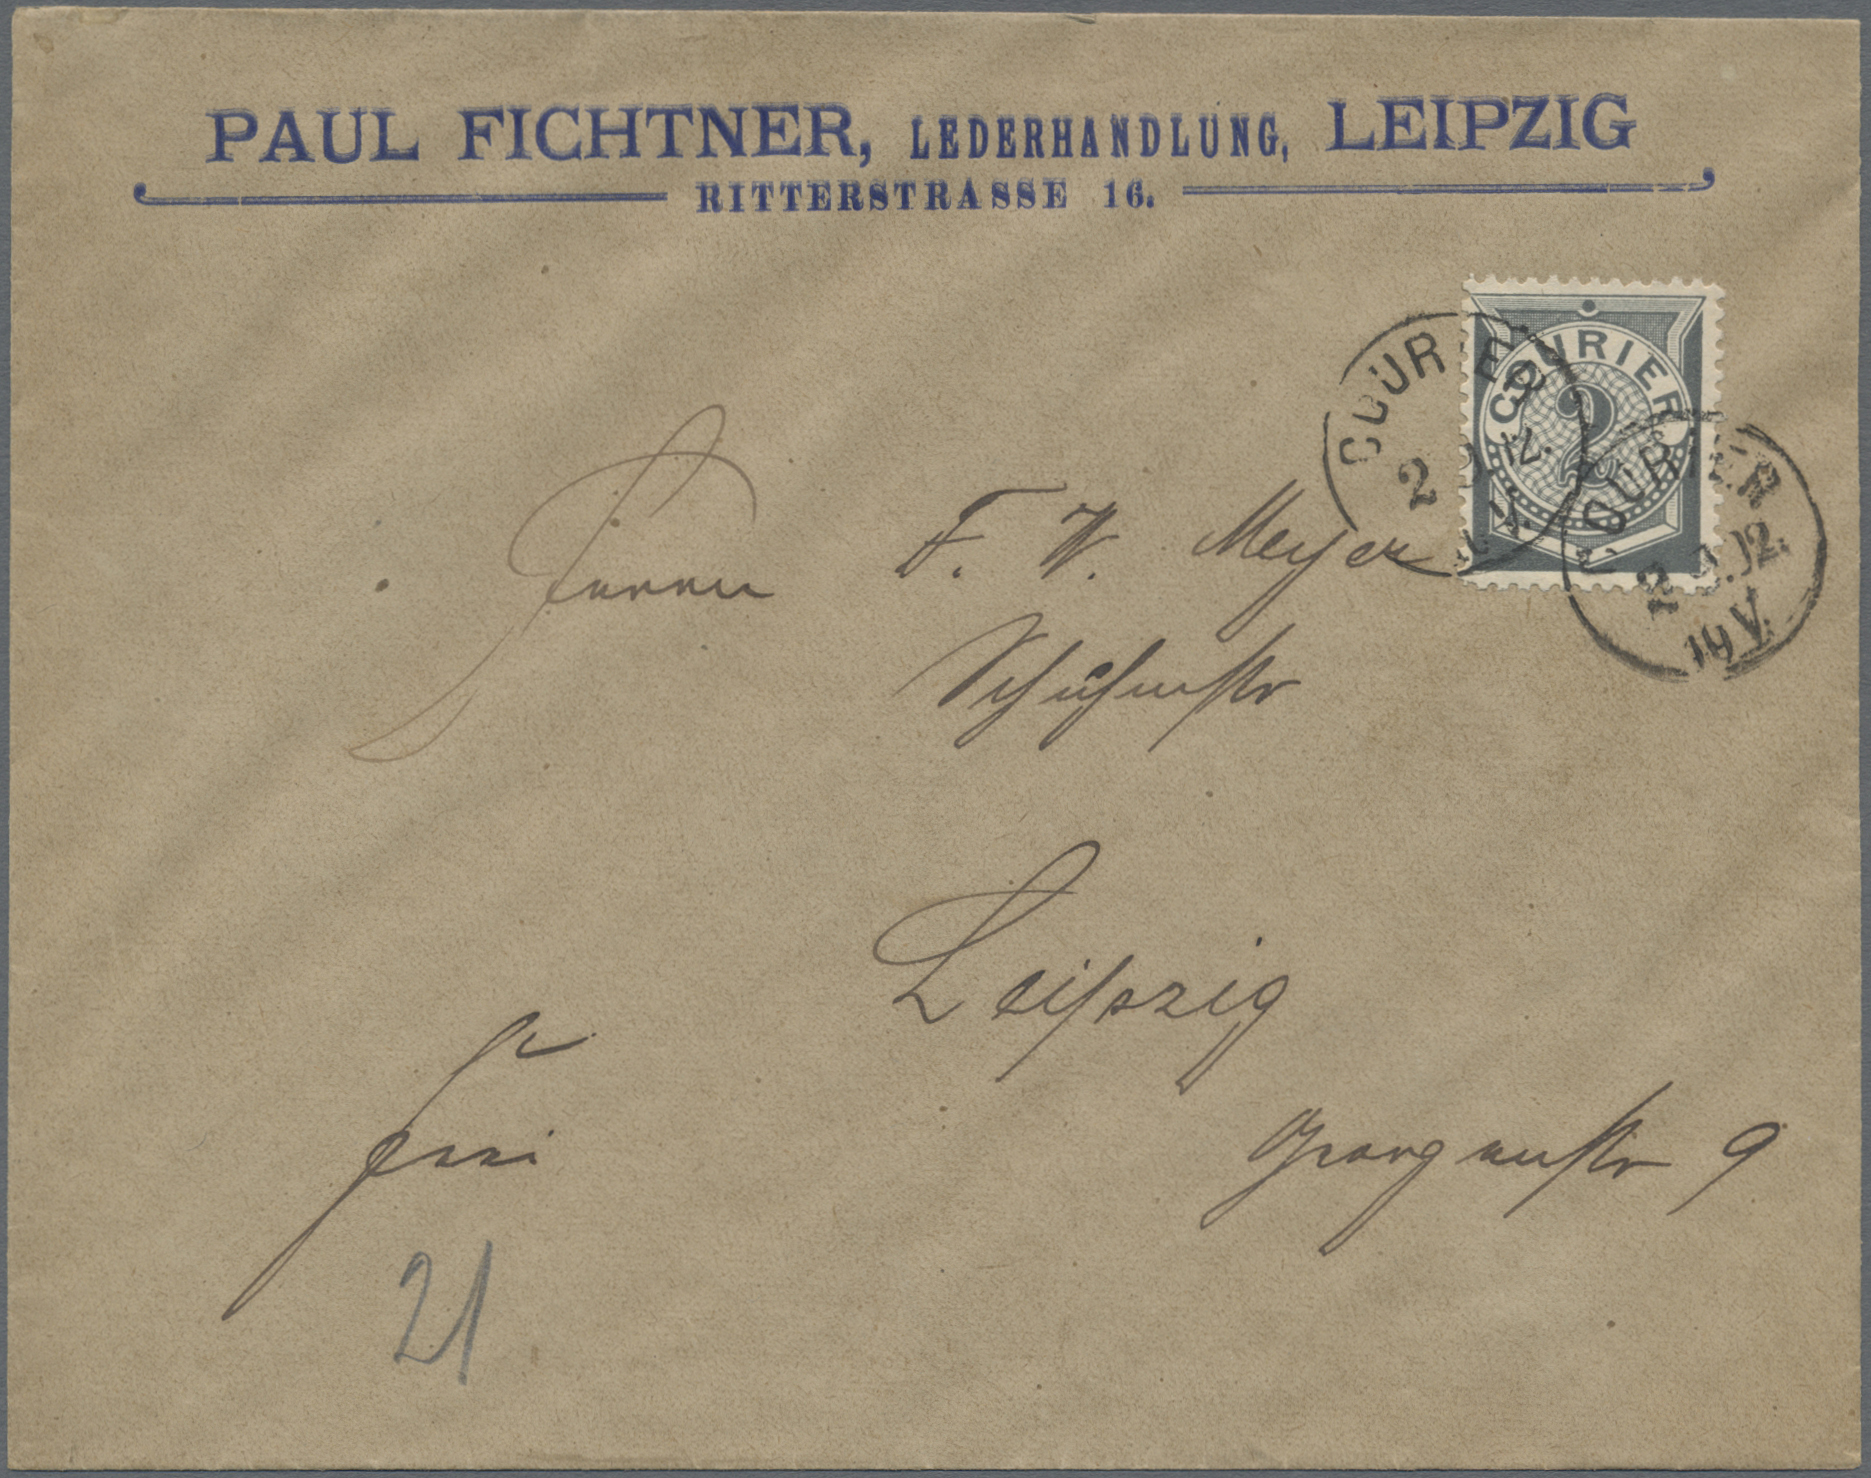 PAUL FICHTNER, LEDERHANDLUNG, LEIPZIG
RITTERSTRASSE 16.
COURIER
2
COURIER
2
COURIER
2 92.
V.
Herrn F. W. Meyer
Schuhmstr
Leipzig
Georgenstr 9
Frei
21